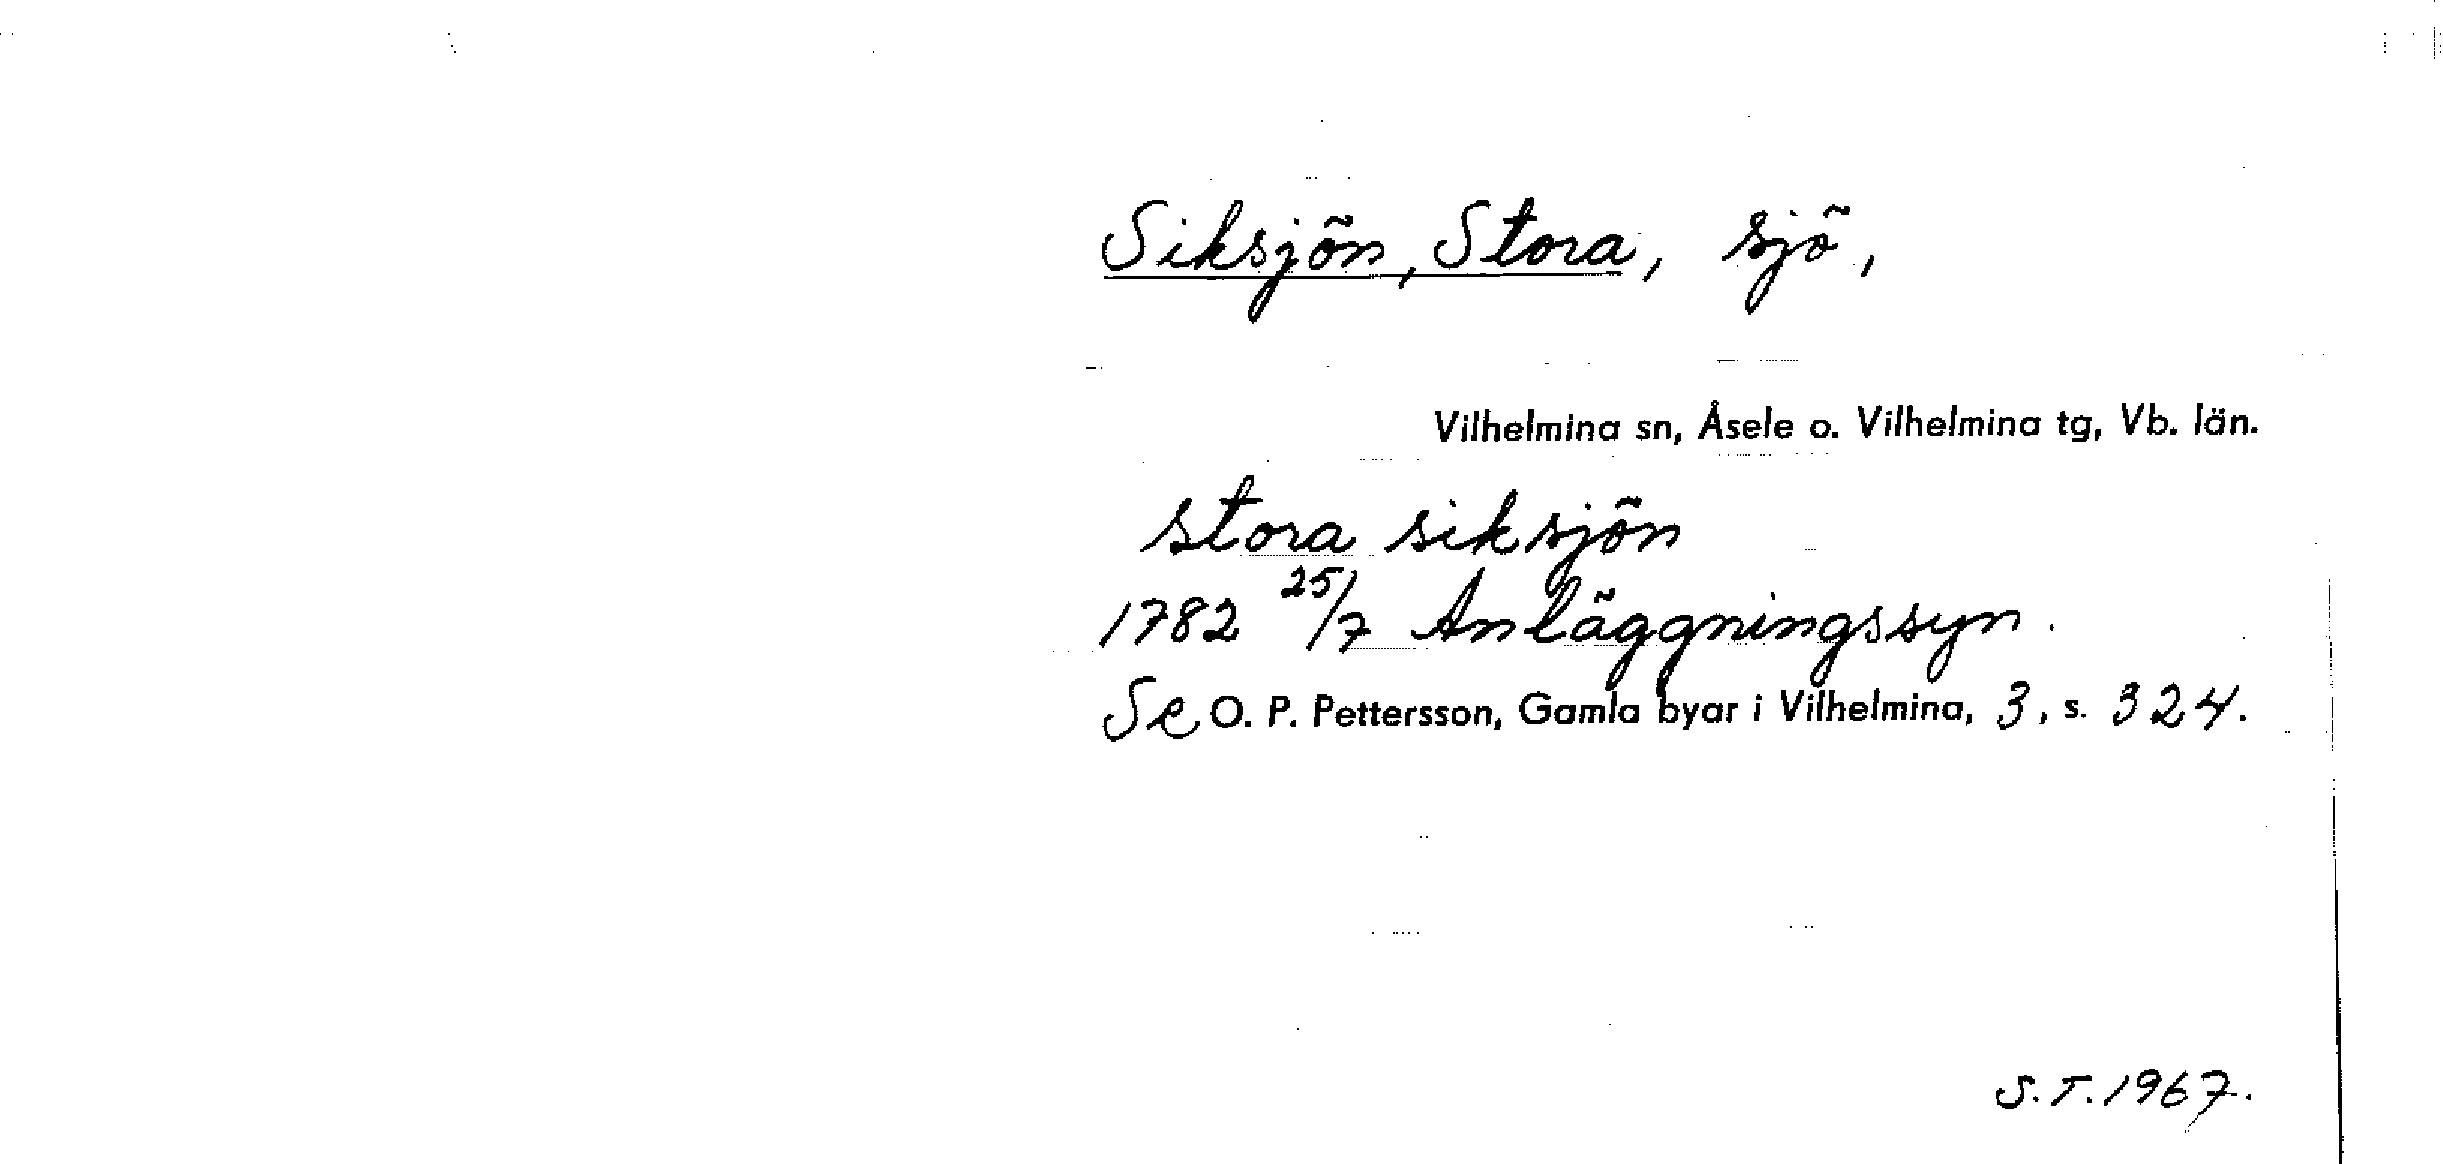 Siksjön, Stora, sjö,
Vilhelmina sn, Åsele o. Vilhelmina tg, Vb. län.
stora siksjön
1782 25/7 Anläggningssyn.
Se O. P. Pettersson, Gamla byar i Vilhelmina, 3, s. 324.
S.T. 1967.